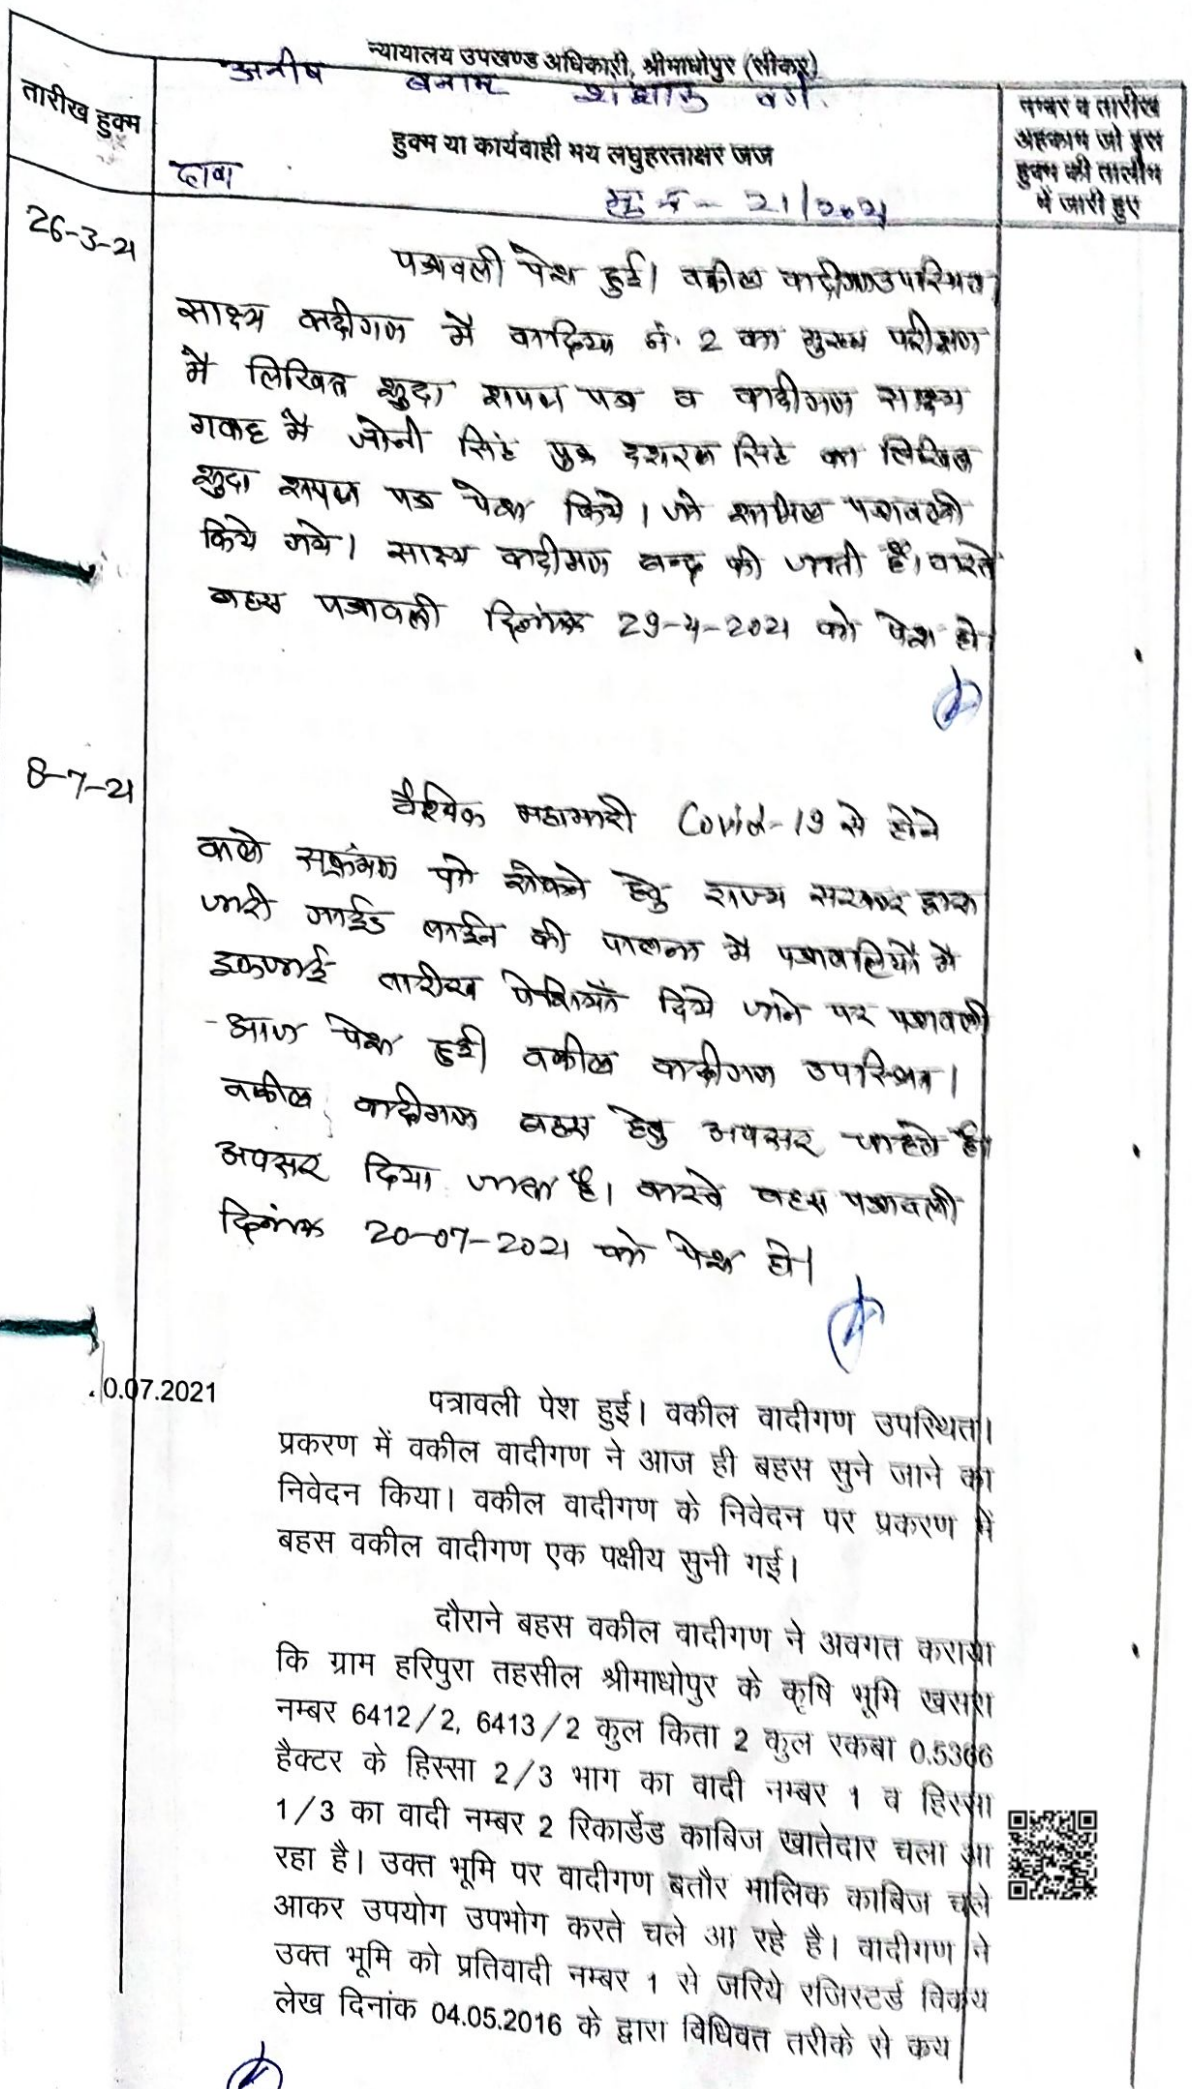 न्यायालय उपखण्ड अधिकारी, श्रीमाधोपुर (सीकर)
बनाम
तारीख हुक्म
हुक्म या कार्यवाही मय लघुहस्ताक्षर जज
नम्बर व तारीख
अहकाम जो इस
हुक्म की तालीम
में जारी हुए
दावा
मु.न. - 21/2021
26-3-21
पत्रावली पेश हुई। वकील वादीगण उपस्थित।
साक्ष्य वादीगण मे वादिया नं. 2 का मुख्य परीक्षण
मे लिखित शुदा शपथ पत्र व वादीगण साक्ष्य
गवाह मे जोनी सिंह पुत्र दशरथ सिंह का लिखित
शुदा शपथ पत्र पेश किये। जो शामिल पत्रावली
किये गये। साक्ष्य वादीगण बन्द की जाती है। वास्ते
बहस पत्रावली दिनांक 29-4-2021 को पेश हो।
8-7-21
वैश्विक महामारी Covid-19 से होने
वाले संक्रमण को रोकने हेतु राज्य सरकार द्वारा
जारी गाईड लाईन की पालना मे पत्रावलियों मे
इकजाई तारीख पेशियाँ दिये जाने पर पत्रावली
आज पेश हुई। वकील वादीगण उपस्थित।
वकील वादीगण बहस हेतु अवसर चाहते है।
अवसर दिया जाता है। वास्ते बहस पत्रावली
दिनांक 20-07-2021 को पेश हो।
0.07.2021
पत्रावली पेश हुई। वकील वादीगण उपस्थित।
प्रकरण में वकील वादीगण ने आज ही बहस सुने जाने का
निवेदन किया। वकील वादीगण के निवेदन पर प्रकरण में
बहस वकील वादीगण एक पक्षीय सुनी गई।
दौराने बहस वकील वादीगण ने अवगत कराया
कि ग्राम हरिपुरा तहसील श्रीमाधोपुर के कृषि भूमि खसरा
नम्बर 6412/2, 6413/2 कुल किता 2 कुल रकबा 0.5366
हैक्टर के हिस्सा 2/3 भाग का वादी नम्बर 1 व हिस्सा
1/3 का वादी नम्बर 2 रिकार्डेड काबिज खातेदार चला आ
रहा है। उक्त भूमि पर वादीगण बतौर मालिक काबिज चले
आकर उपयोग उपभोग करते चले आ रहे है। वादीगण ने
उक्त भूमि को प्रतिवादी नम्बर 1 से जरिये रजिस्टर्ड विक्रय
लेख दिनांक 04.05.2016 के द्वारा विधिवत तरीके से क्रय